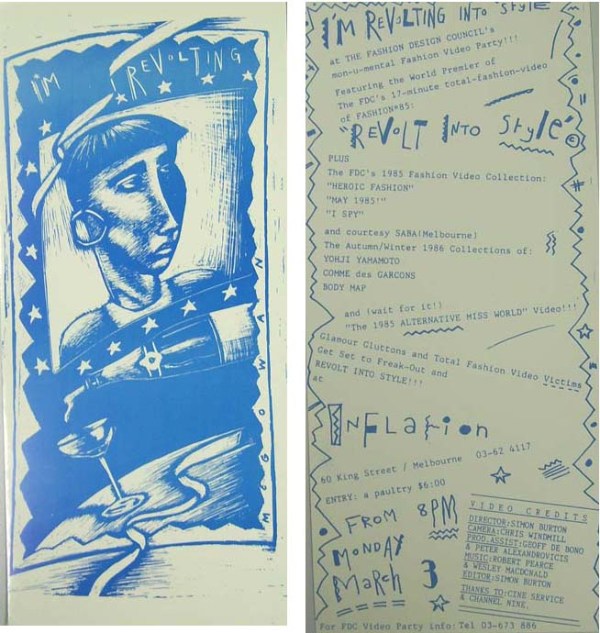 I'M REVOLTING
McGOWAN
I'M REVOLTING INTO "Style"
at THE FASHION DESIGN COUNCIL's
mon-u-mental Fashion Video Party!!!
Featuring the World Premier of
The FDC's 17-minute total-fashion-video
of FASHION*85:
"REVOLT INTO Style"©
PLUS
The FDC's 1985 Fashion Video Collection:
"HEROIC FASHION"
"MAY 1985!"
"I SPY"
and courtesy SABA(Melbourne)
The Autumn/Winter 1986 Collections of:
YOHJI YAMAMOTO
COMME des GARCONS
BODY MAP
and (wait for it!)
"The 1985 ALTERNATIVE MISS WORLD" Video!!!
Glamour Gluttons and Total Fashion Video Victims
Get Set to Freak-Out and
REVOLT INTO STYLE!!!
at
INFLATION
60 King Street / Melbourne 03-62 4117
ENTRY: a paultry $6:00
FROM 8PM
MONDAY
MARCH 3
VIDEO CREDITS
DIRECTOR:SIMON BURTON
CAMERA:CHRIS WINDMILL
PROD.ASSIST:GEOFF DE BONO
& PETER ALEXANDROVICIS
MUSIC:ROBERT PEARCE
& WESLEY MACDONALD
EDITOR:SIMON BURTON
THANKS TO:CINE SERVICE
& CHANNEL NINE.
For FDC Video Party info: Tel 03-673 886